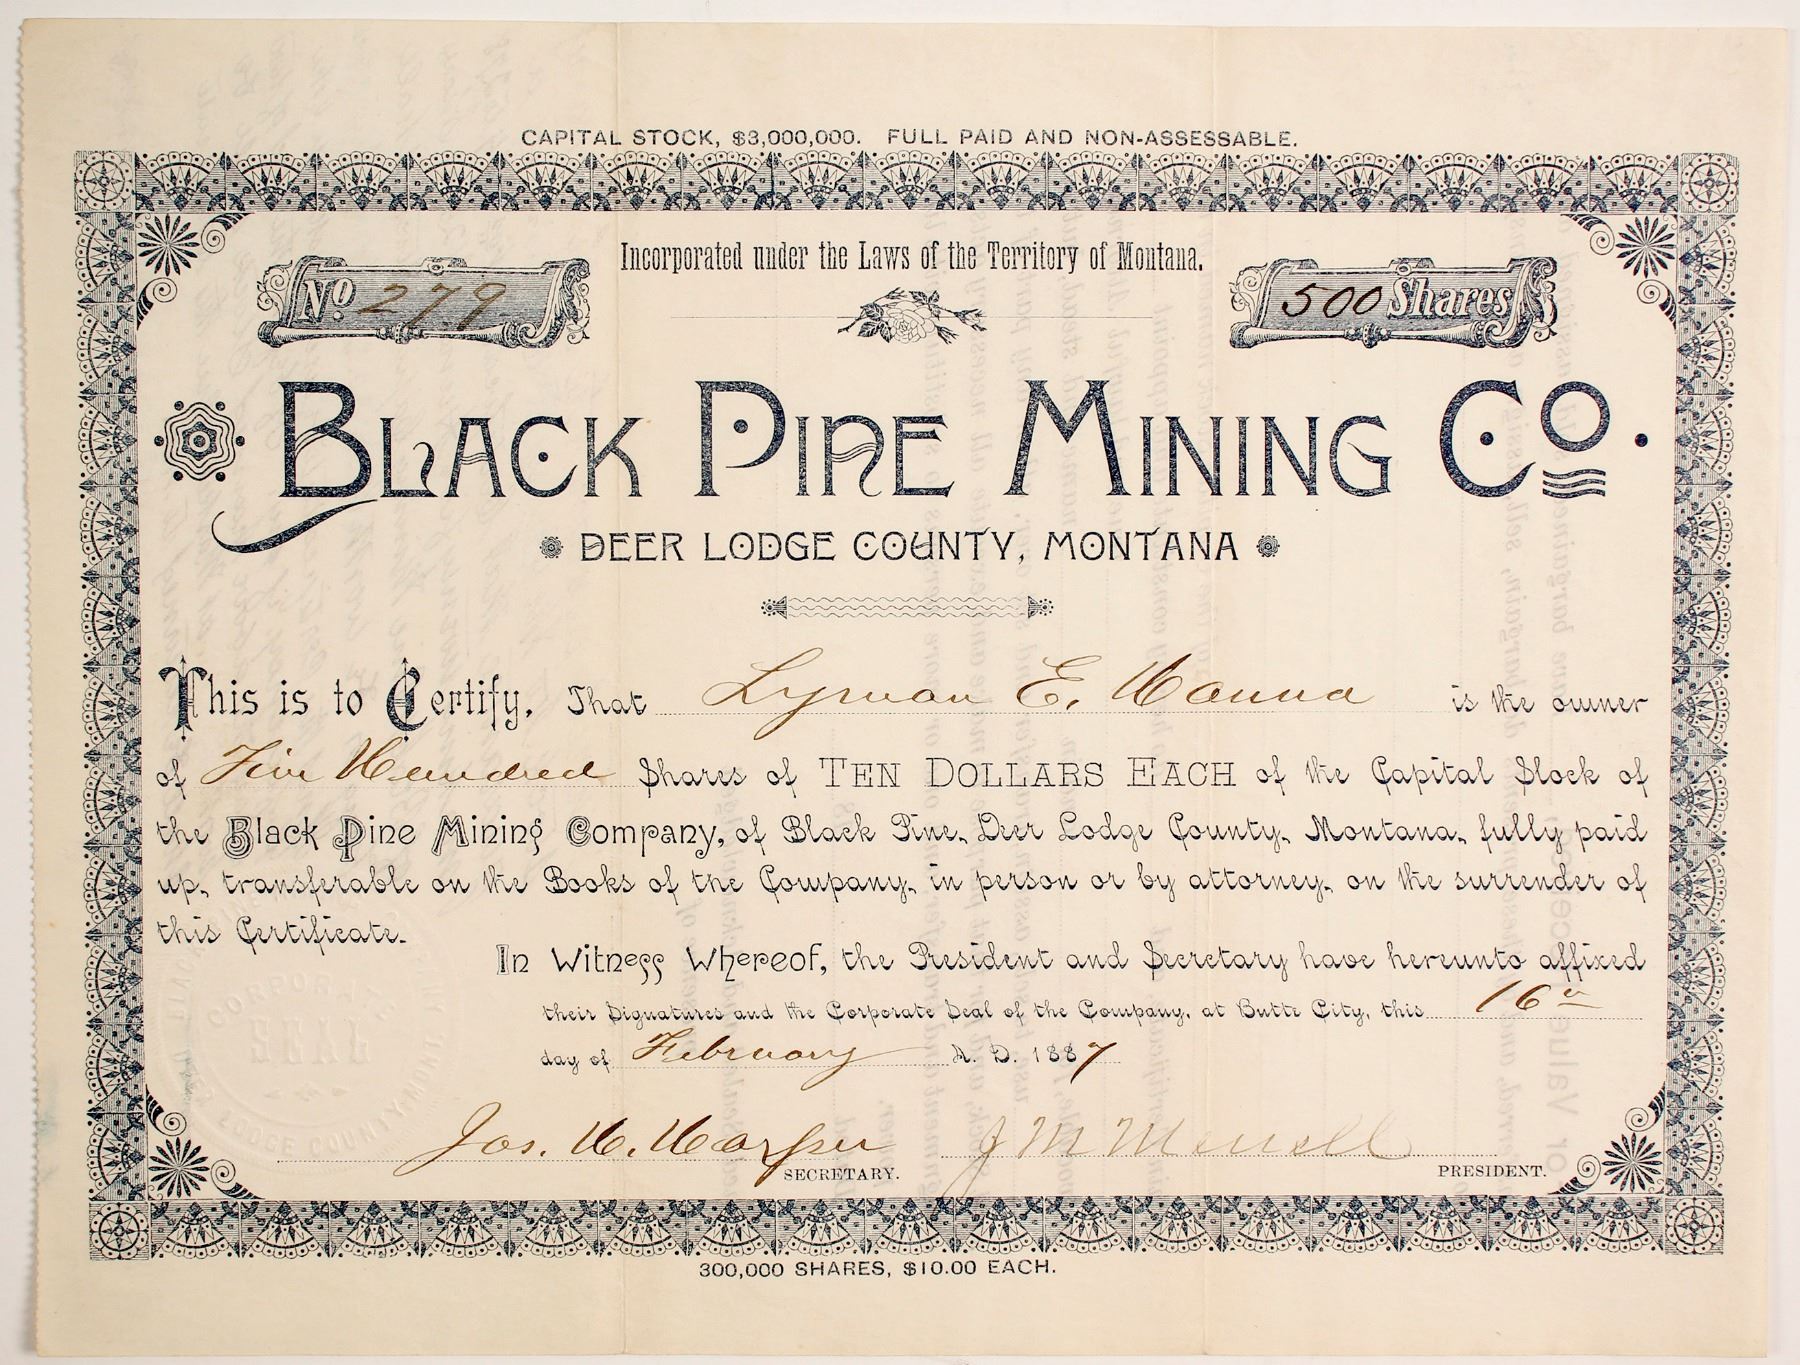 CAPITAL STOCK, $3,000,000. FULL PAID AND NON-ASSESSABLE.
Incorporated under the Laws of the Territory of Montana.
No. 279
500 Shares
BLACK PINE MINING CO.
DEER LODGE COUNTY, MONTANA
This is to Certify, That Lyman E. Hanna is the owner
of Five Hundred Shares of TEN DOLLARS EACH of the Capital Stock of
the Black Pine Mining Company, of Black Pine, Deer Lodge County, Montana, fully paid
up, transferable on the Books of the Company, in person or by attorney, on the surrender of
this Certificate.
In Witness Whereof, the President and Secretary have hereunto affixed
their Signatures and the Corporate Seal of the Company, at Butte City, this 16
day of February A. D. 1887
CORPORATE
SEAL
DEER LODGE COUNTY, MONT
Jos. H. Harper
SECRETARY.
J M Merrell
PRESIDENT.
300,000 SHARES, $10.00 EACH.